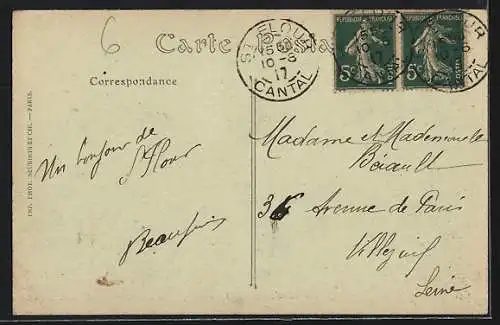 6
Carte Postale
Correspondance
IMP. PHOT. NEURDEIN ET Cie. — PARIS.
ST FLOUR
15
10-6
17
CANTAL
REPUBLIQUE FRANÇAISE
5c
POSTES
REPUBLIQUE FRANÇAISE
5c
POSTES
Un bonjour de
St Flour
Madame et Mademoiselle
Bérault
36 Avenue de Paris
Villejuif
Seine